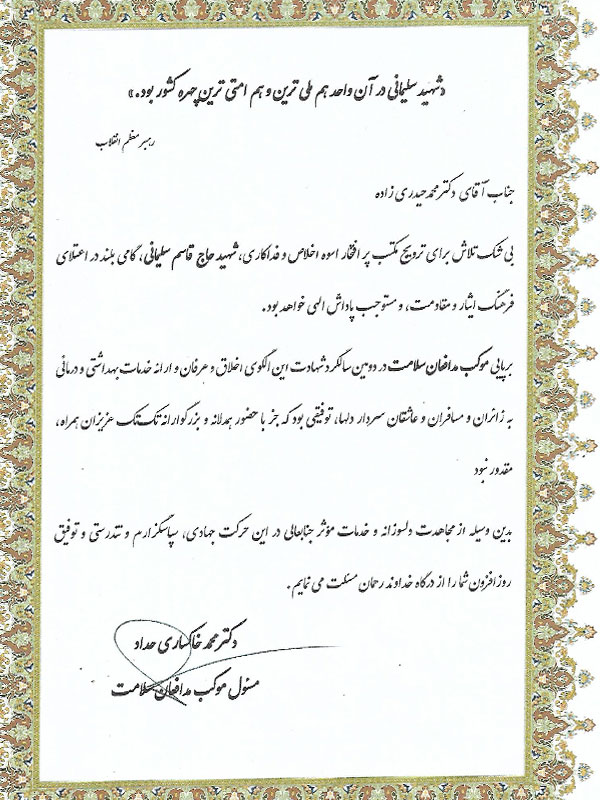 «شهید سلیمانی در آن واحد هم ملی ترین و هم امتی ترین چهره کشور بود.»
رهبر معظم انقلاب
جناب آقای دکتر محمد حیدری زاده
بی شک تلاش برای ترویج مکتب پر افتخار اسوه اخلاص و فداکاری، شهید حاج قاسم سلیمانی، گامی بلند در اعتلای
فرهنگ ایثار و مقاومت، و مستوجب پاداش الهی خواهد بود.
برپایی موکب مدافعان سلامت در دومین سالگرد شهادت این الگوی اخلاق و عرفان و ارائه خدمات بهداشتی و درمانی
به زائران و مسافران و عاشقان سردار دلها، توفیقی بود که جز با حضور همدلانه و بزرگوارانه تک تک عزیزان همراه،
مقدور نبود
بدین وسیله از مجاهدت دلسوزانه و خدمات مؤثر جنابعالی در این حرکت جهادی، سپاسگزارم و تندرستی و توفیق
روز افزون شما را از درگاه خداوند رحمان مسئلت می نمایم.
دکتر محمد خاکساری حداد
مسئول موکب مدافعان سلامت